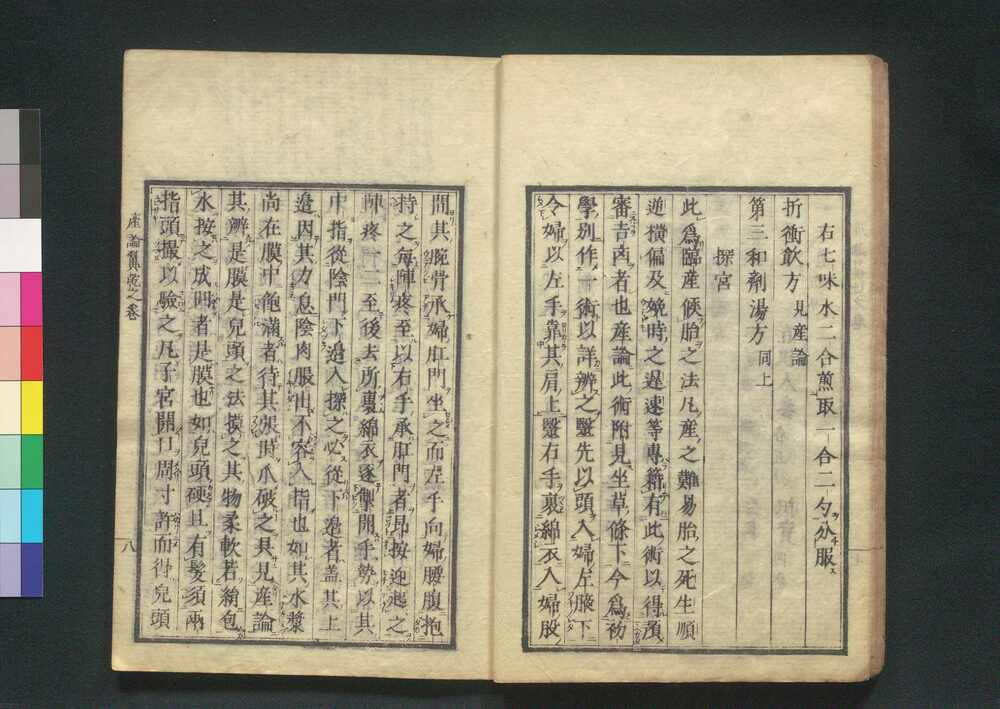 右七味水二合煎取一合二勺分服
折衝飲方見産論
第三和劑湯方同上
探宮
此爲臨産候胎之法凡産之難易胎之死生順
逆橫偏及娩時之遲速等專籍有此術以得預
審吉凶者也産論此術附見坐草條下今爲初
學別作一術以詳辨之毉先以頭入婦左腋下
令婦以左手靠其肩上毉右手裹綿衣入婦股
間其腕骨承婦肛門坐之而左手向婦腰腹抱
持之每陣疼至以右手承肛門者昻按迎起之
陣疼一二至後去所裹綿衣逐漸開手勢以其
中指從陰門下邉入探之必從下邉者盖其上
邉因其力息陰肉脹出不容入指也如其水漿
尚在膜中飽滿者待其張以爪破之具見産論
其辨是膜是兒頭之法摸之其物柔軟若綃包
水按之成凹者是膜也如兒頭硬且有髪須兩
指頭撮以驗之凡子宮開口周寸許而得兒頭
産論翼乾之卷
八